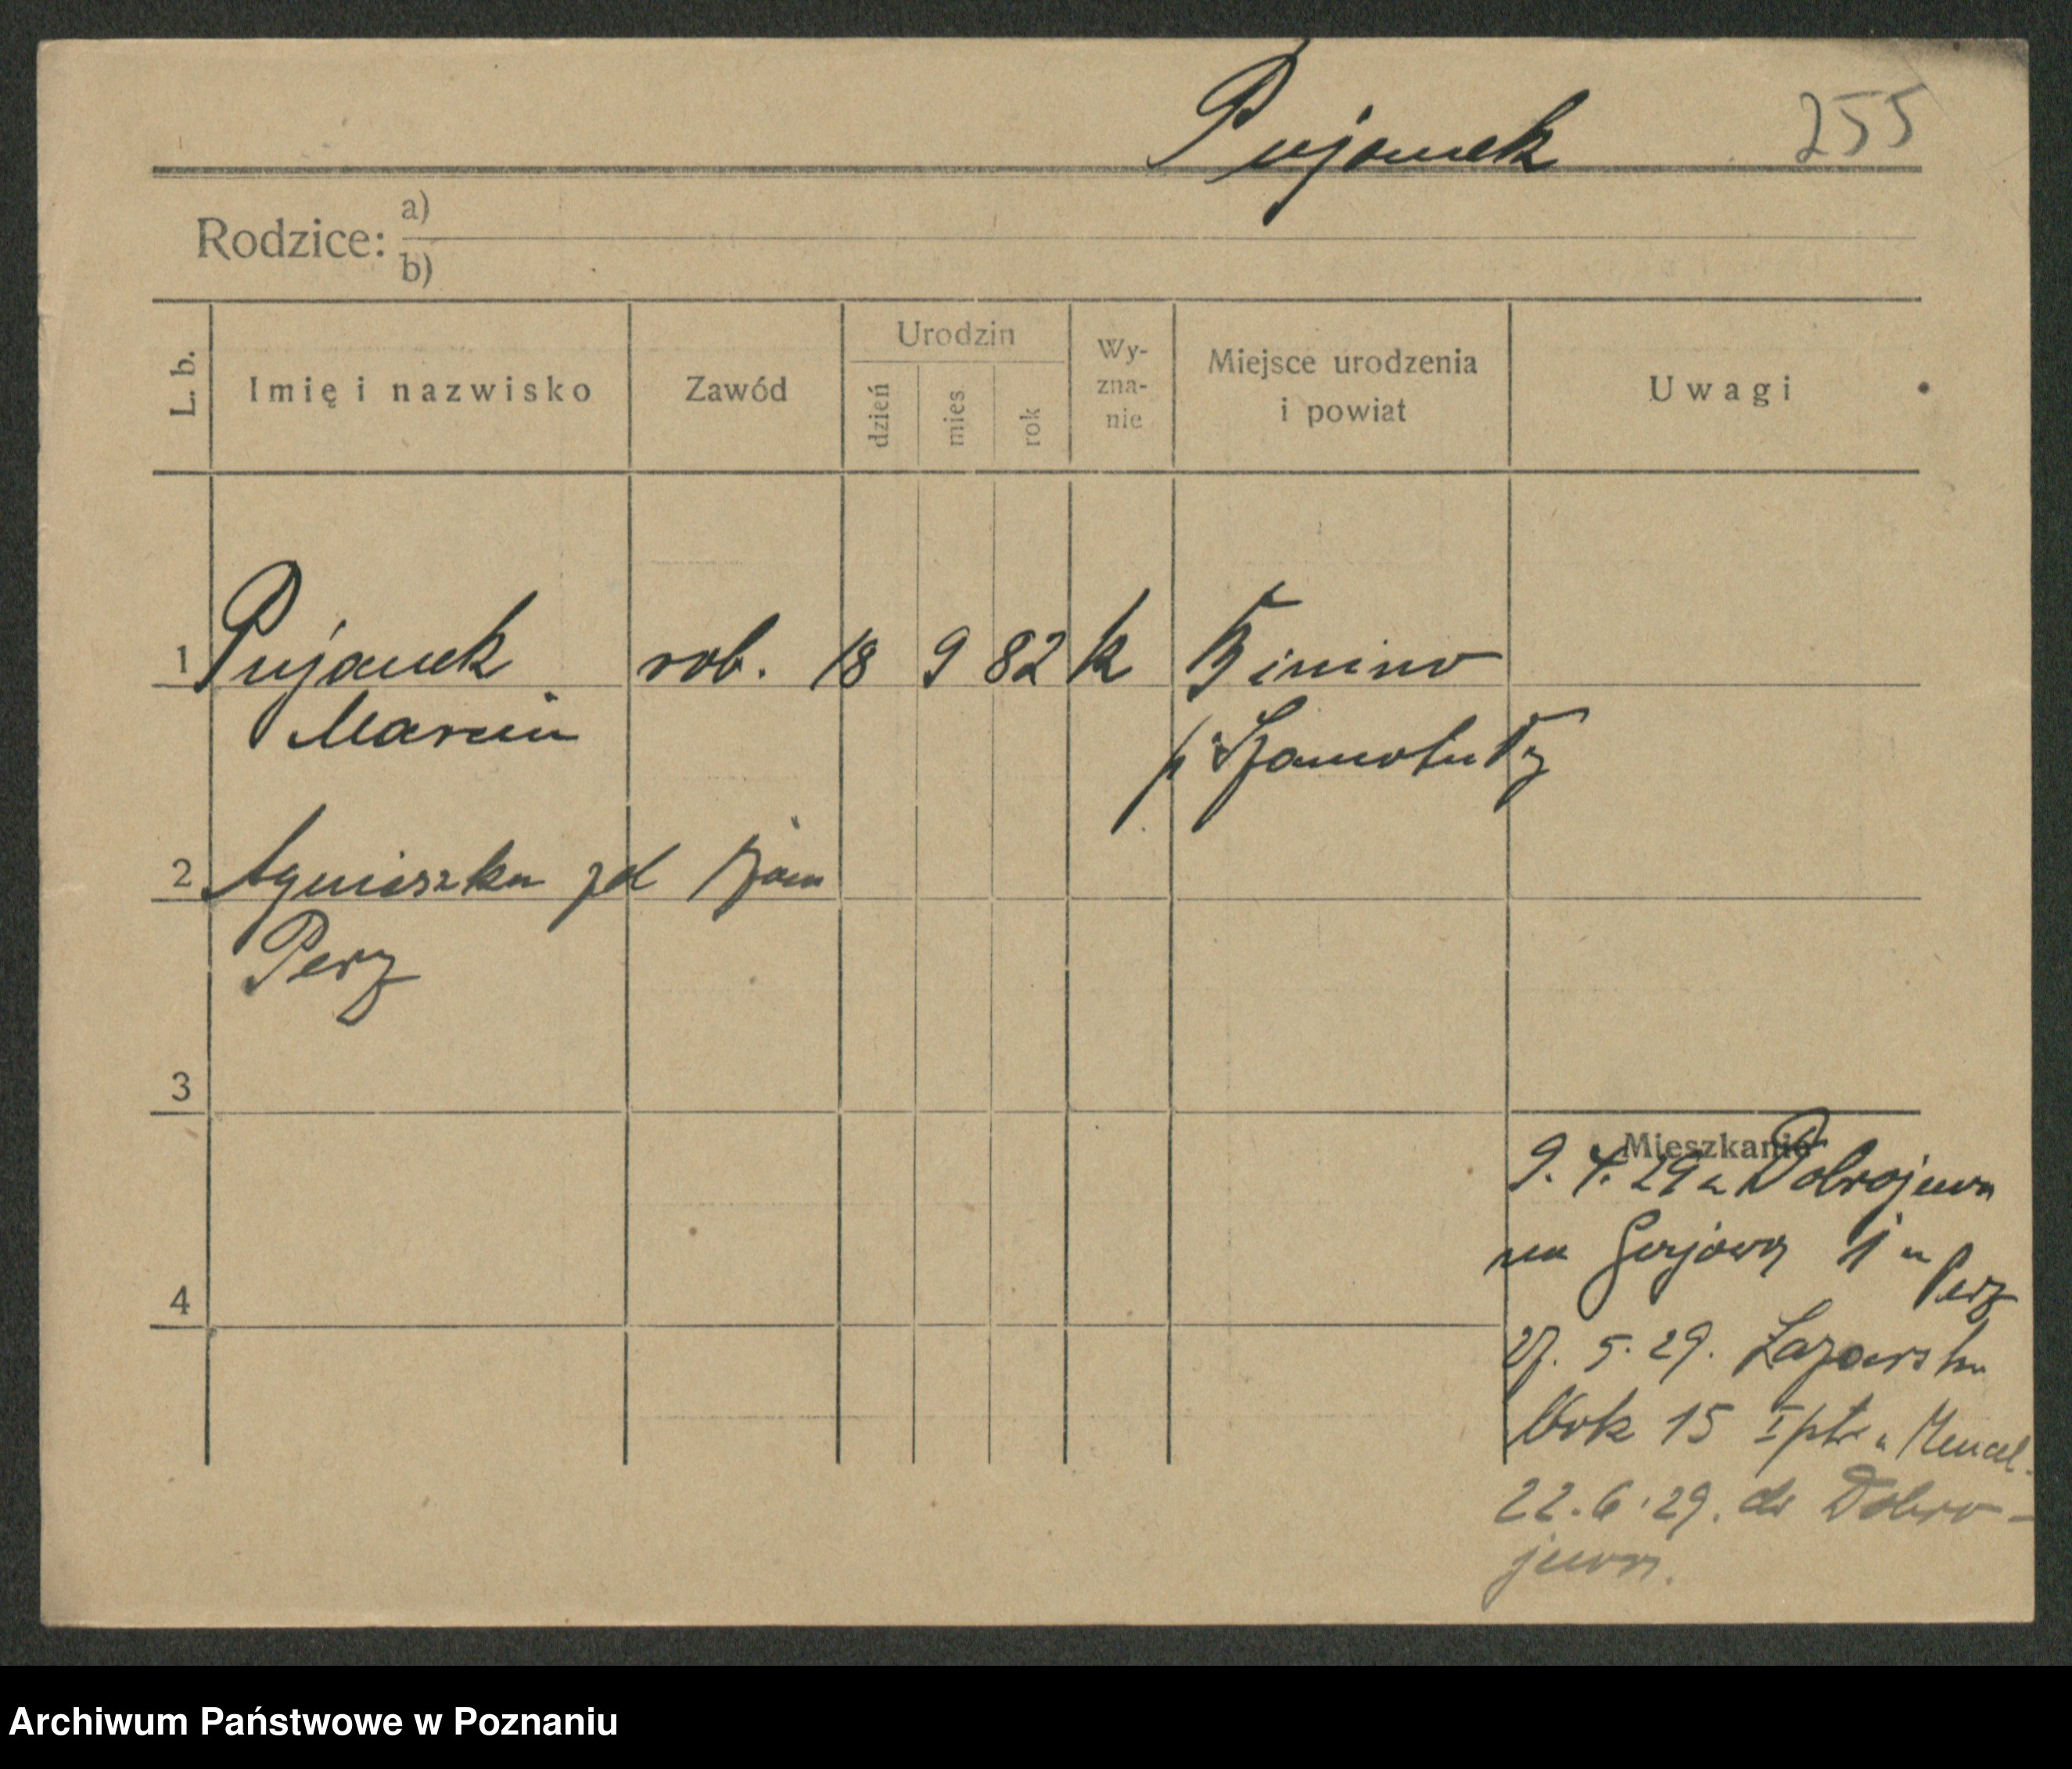 Pujanek 255
Rodzice: a)
b)
L. b. Imię i nazwisko Zawód Urodzin dzień mies rok Wy-zna-nie Miejsce urodzenia i powiat Uwagi
1 Pujanek rob. 18 9 82 k Binino
Marcin p. Szamotuły
2 Agnieszka zd
Perz
3
Mieszkanie
9. 4. 29 z Dobrojewa
na Gajową 1 u Perz
4
27. 5. 29. Łazarska
bok 15 I ptr u Mencel
22. 6. 29. do Dobro-
jewa.
Archiwum Państwowe w Poznaniu